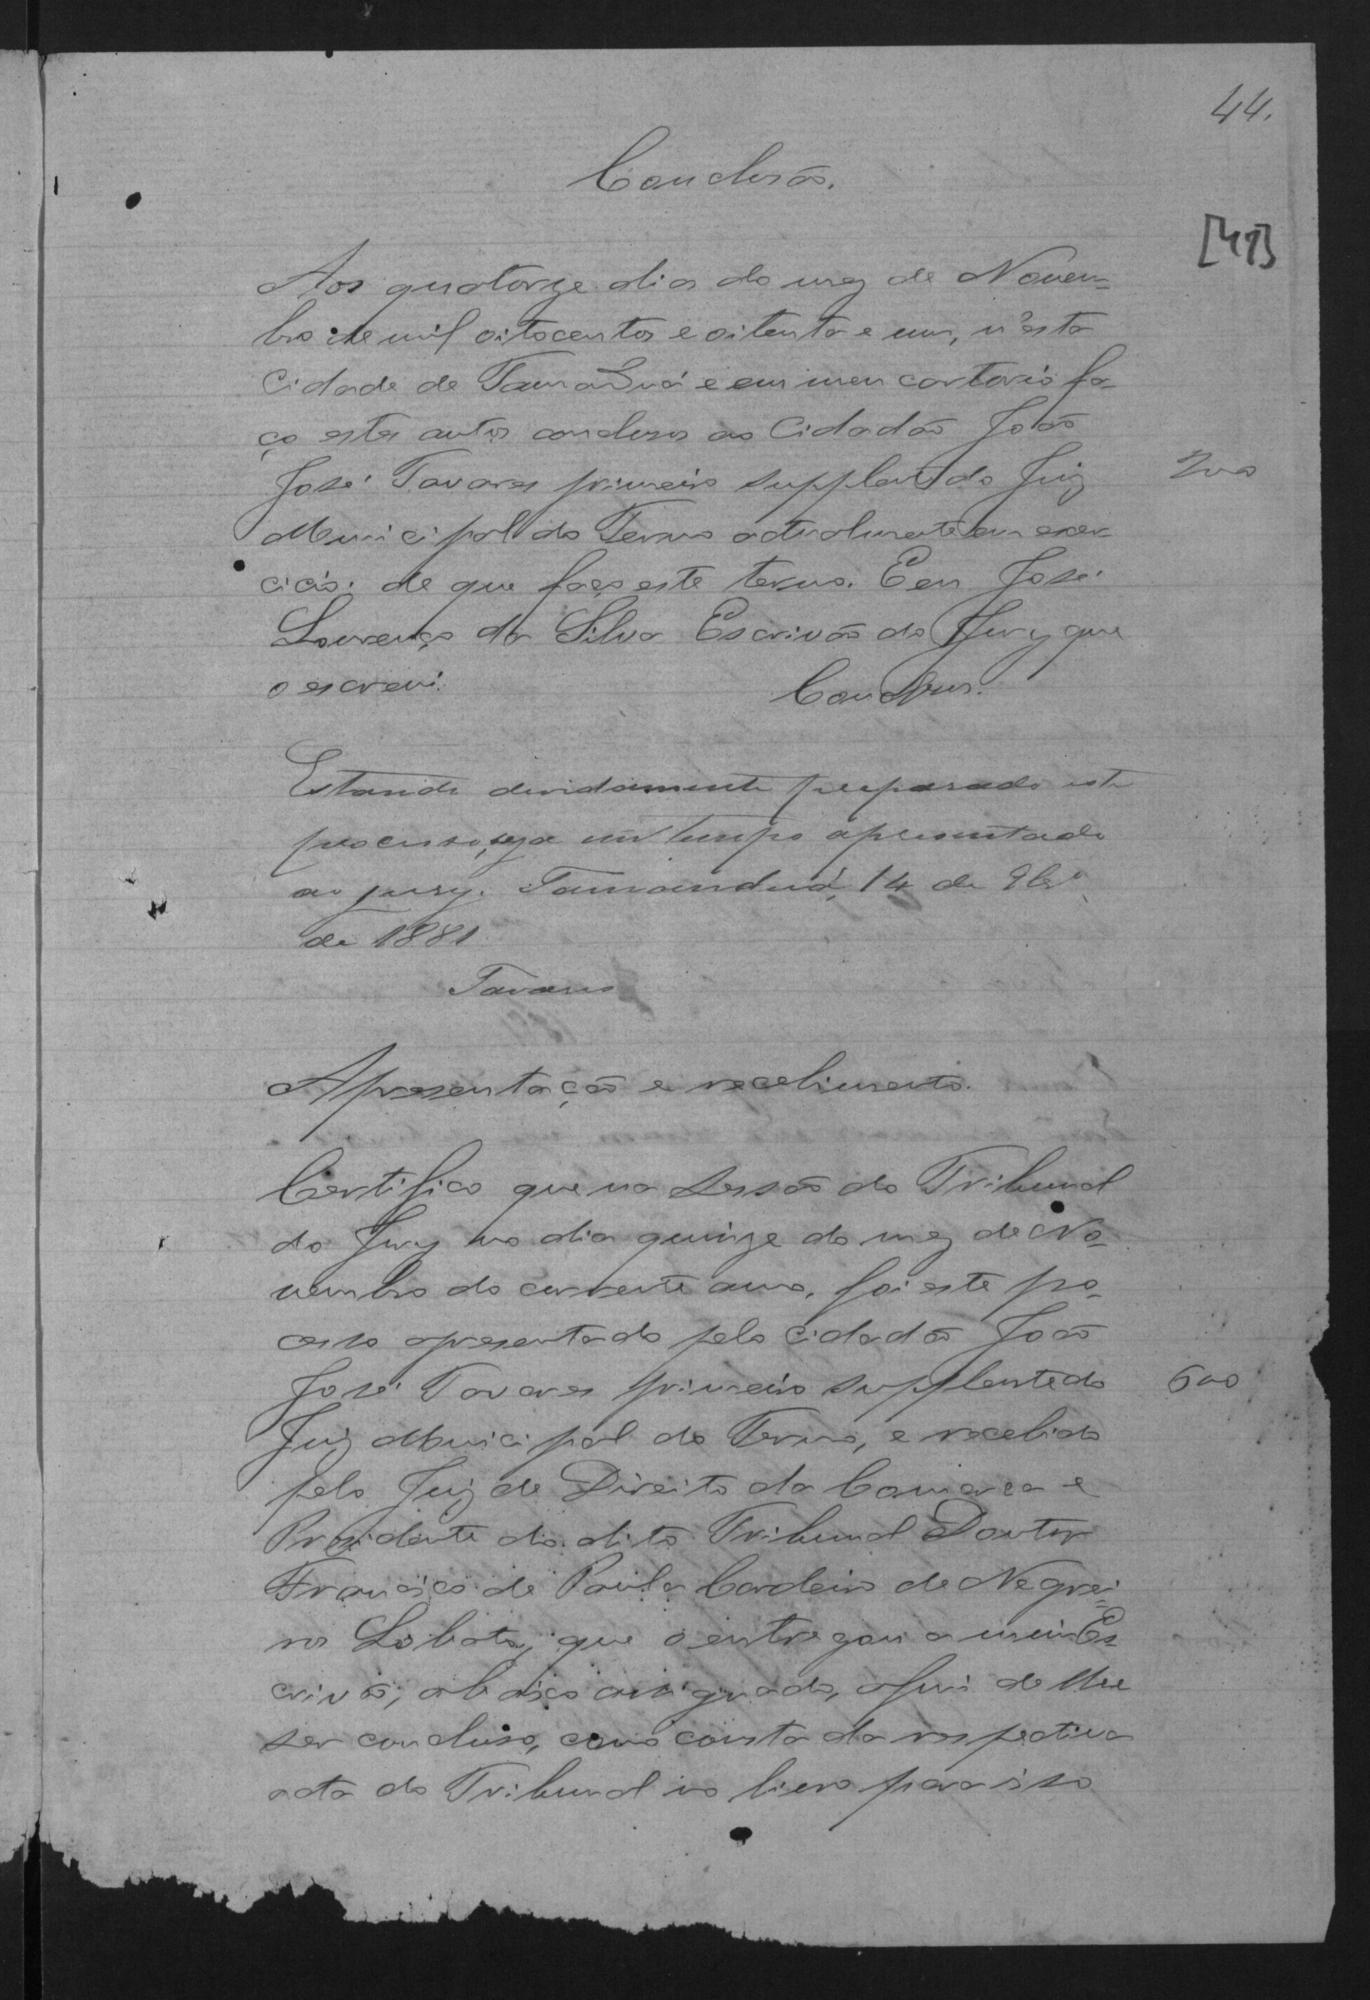 44.
Conclusão.
[41]
Aos quatorze dias do mez de Novem-
bro de mil oitocentos e oitenta e um, n'esta
Cidade de Tamanduá e em meu cartorio fa-
ço estes autos conclusos ao Cidadão João
José Tavares primeiro supplente do Juiz
200
Municipal do Termo actualmente em exer-
cicio; de que faço este termo. E eu José
Lourenço da Silva Escrivão do Jury que
o escrevi.
Conclusos.
Estando devidamente preparado este
processo, seja em tempo apresentado
ao jury. Tamanduá, 14 de 9br.º
de 1881
Tavares
Apresentação e recebimento.
Certifico que na Sessão do Tribunal
do Jury no dia quinze do mez de No-
vembro do corrente anno, foi este pro-
cesso apresentado pelo cidadão João
José Tavares primeiro supplente do
600
Juiz Municipal do Termo, e recebido
pelo Juiz de Direito da Comarca e
Presidente do dito Tribunal Doutor
Francisco de Paula Cordeiro de Negrei-
ros Lobato, que o entregou a mim Es-
crivão, abaixo assignado, afim de lhe
ser concluso, como consta da respectiva
acta do Tribunal no livro para isso